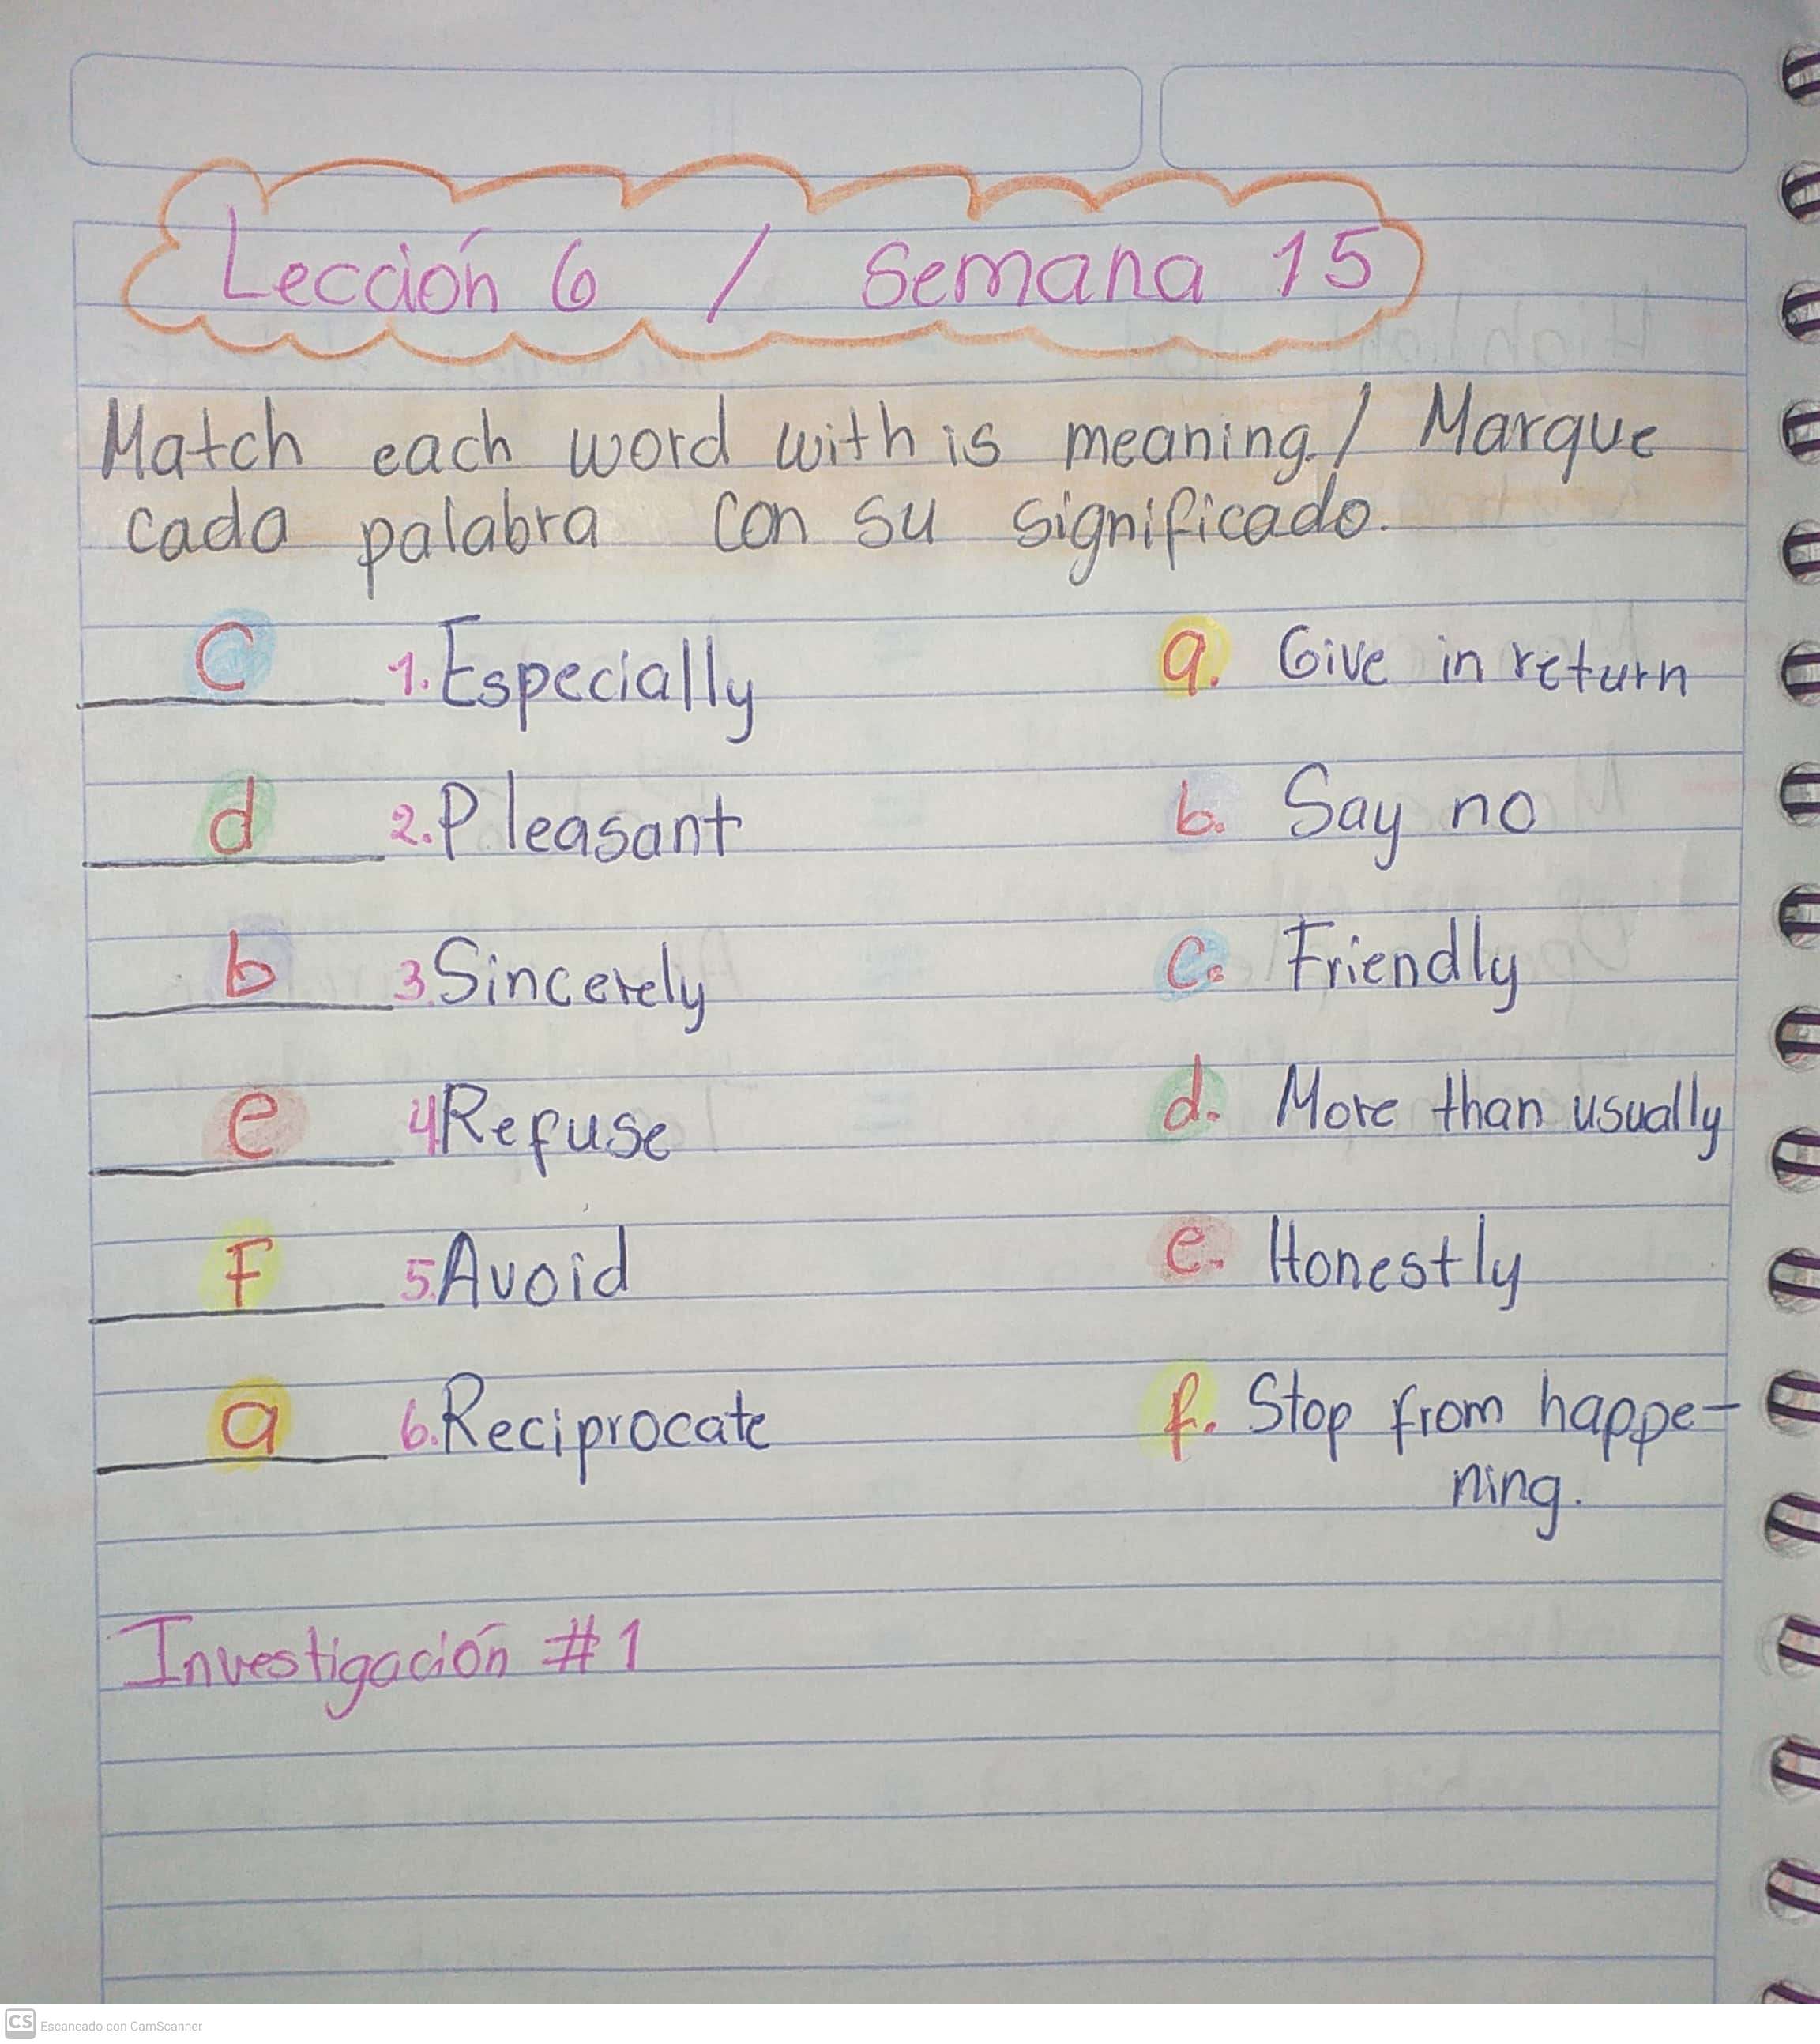 Lección 6 / Semana 15
Match each word with is meaning./ Marque
cada palabra con su significado.
c 1. Especially a. Give in return
d 2. Pleasant b. Say no
b 3. Sincerely c. Friendly
e 4 Refuse d. More than usually
F 5. Avoid e. Honestly
a 6. Reciprocate f. Stop from happe-
ning.
Investigación #1
CS Escaneado con CamScanner